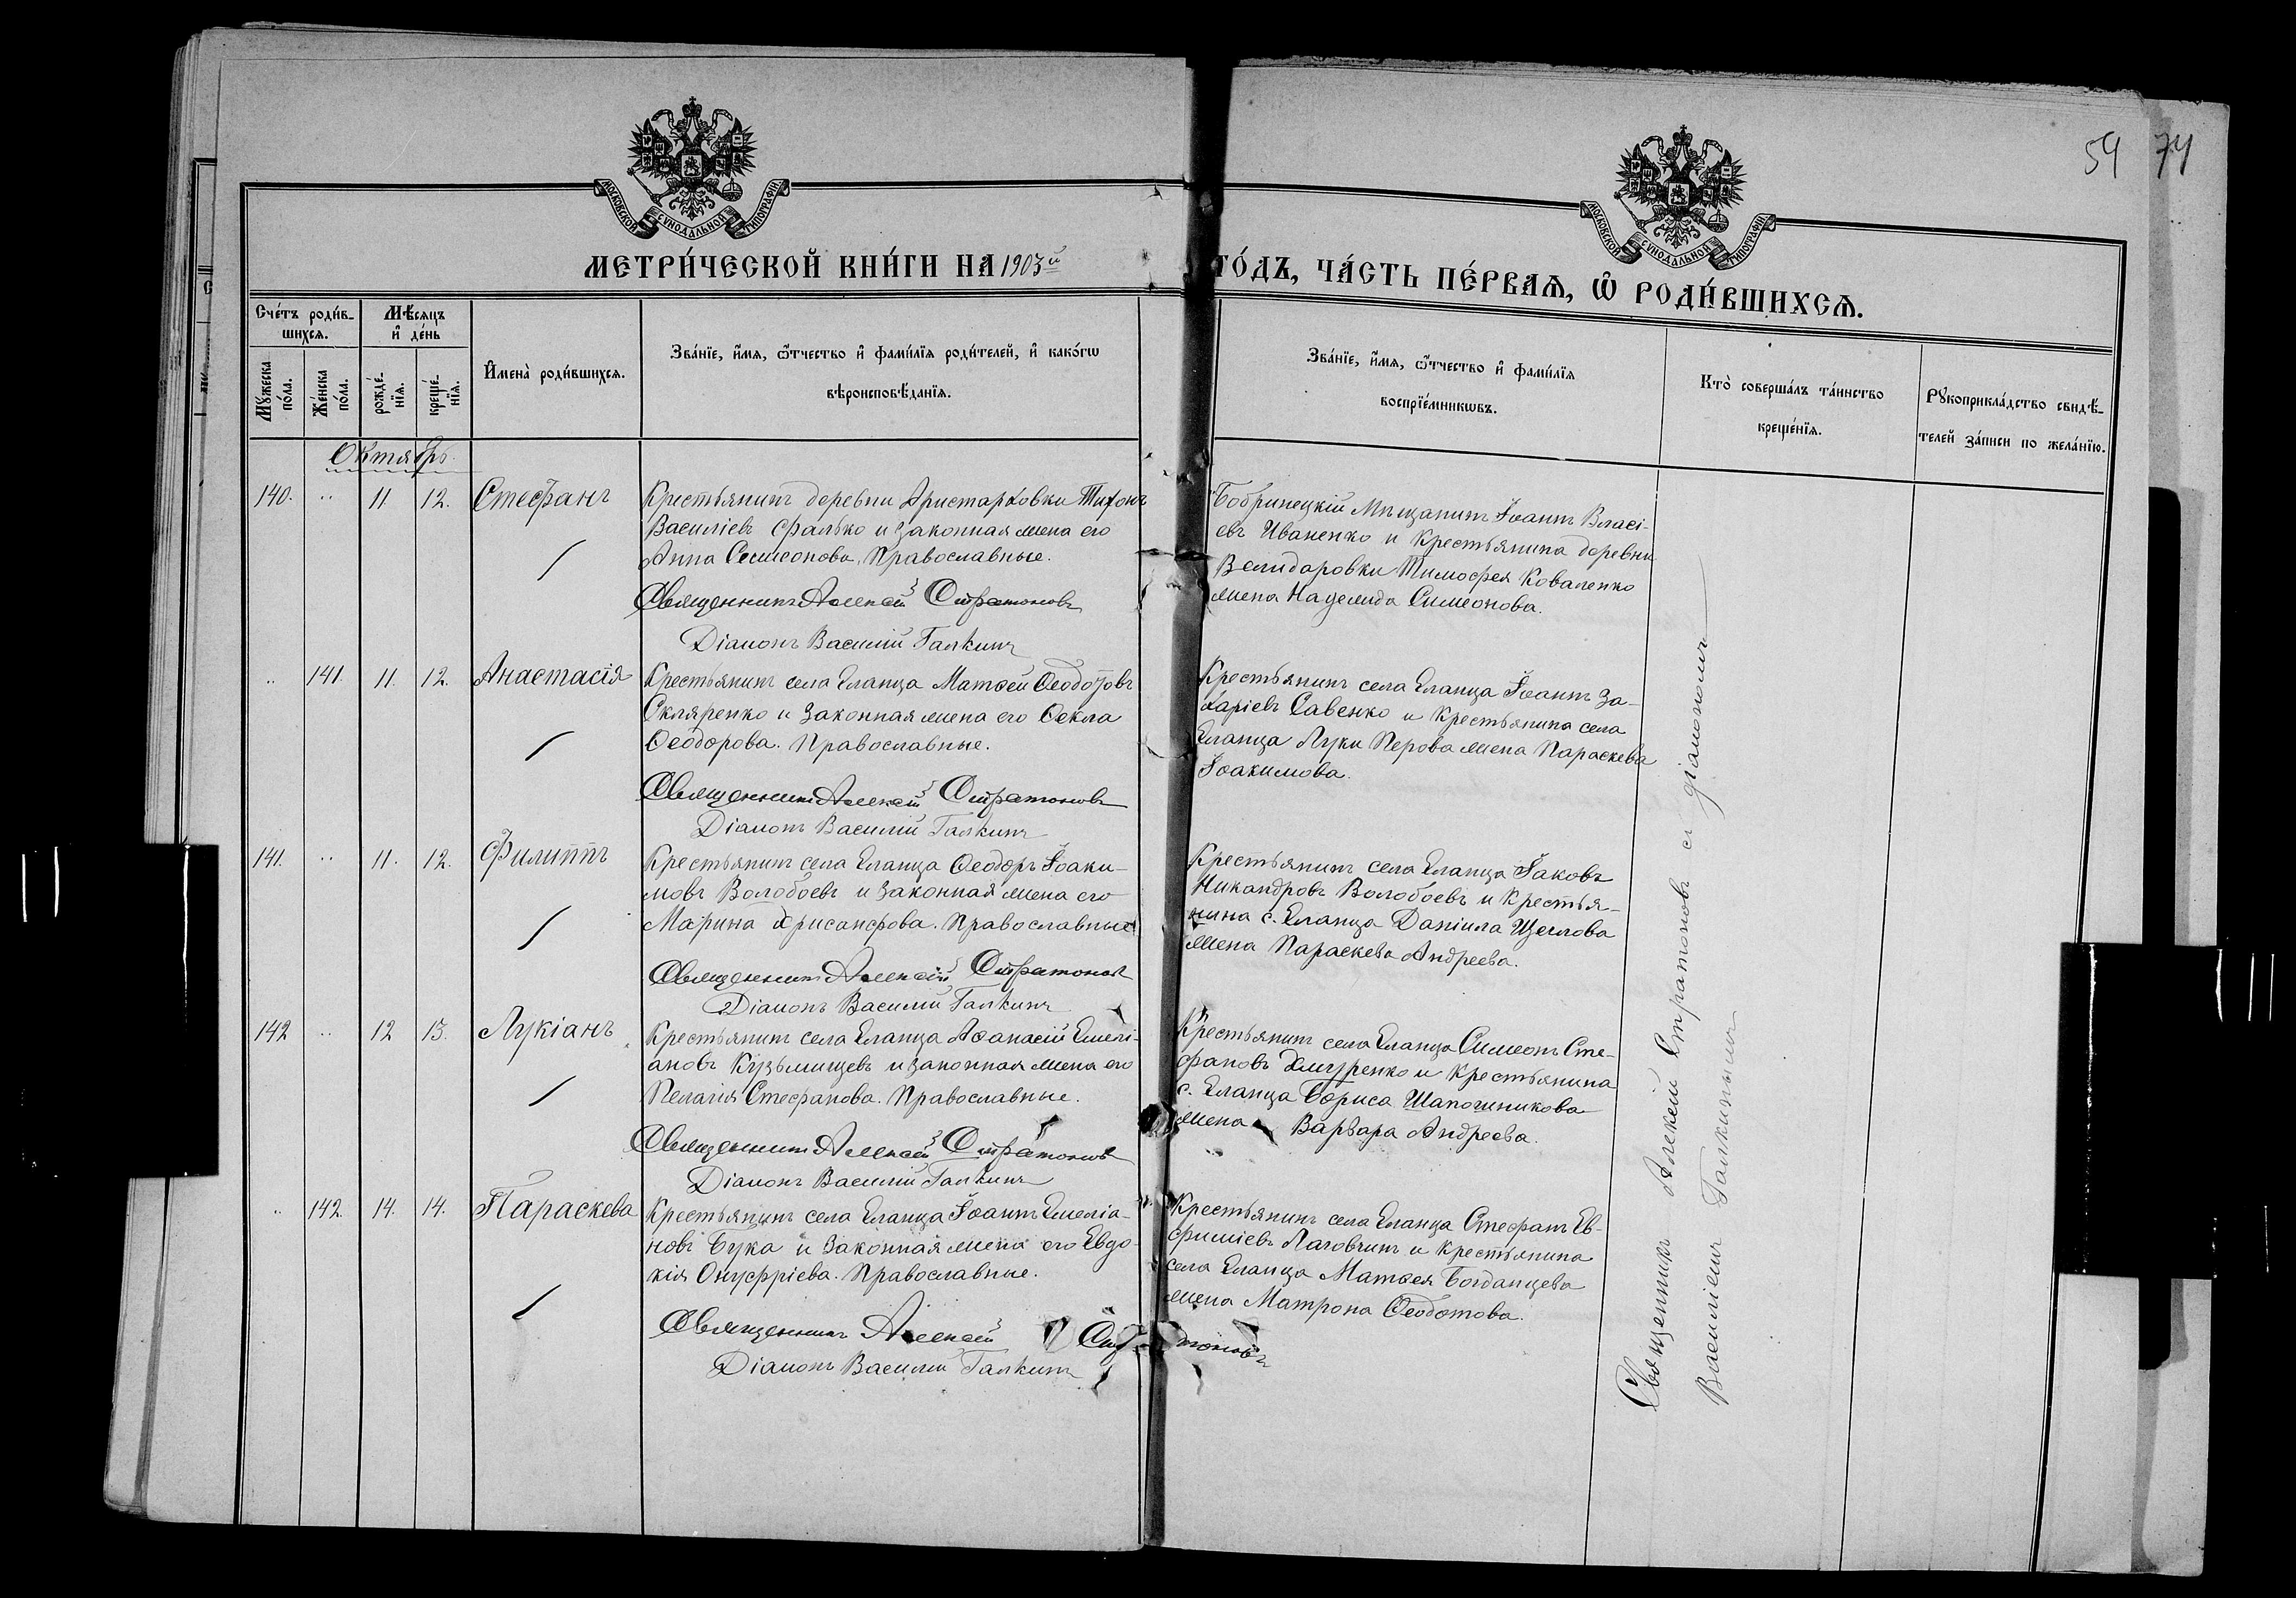 54 74
МОСКОВСКОЙ СѴНОДАЛЬНОЙ ТИПОГРАФІИ
МОСКОВСКОЙ СѴНОДАЛЬНОЙ ТИПОГРАФІИ
МЕТРИ́ЧЕСКОЙ КНИ́ГИ НА 1903й
ГО́ДЪ, ЧА́СТЬ ПЕ́РВАѦ, Ѽ РОДИ́ВШИХСѦ.
Сче́тъ роди́в-
шихсѧ.
Мꙋжеска по́ла.
Же́нска по́ла.
Мѣ́сѧцъ
и҆ де́нь
рожде́-
нїѧ.
креще́-
нїѧ.
И҆мена̀ роди́вшихсѧ.
Зва́нїе, и҆́мѧ, ѻ҆́тчество и҆ фами́лїѧ роди́телей, и҆ како́гѡ
вѣроисповѣ́данїѧ.
Зва́нїе, и҆́мѧ, ѻ҆́тчество и҆ фами́лїѧ
воспрїе́мникѡвъ.
Кто̀ соверша́лъ та́инство
креще́нїѧ.
Рꙋкоприкла́дство свидѣ́-
телей за́писи по жела́нїю.
Октябрь.
140. " 11 12. Стефанъ
Крестьянинъ деревни Аристарховки Тихонъ
Василіевъ Фалько и законная жена его
Анна Симеонова, Православные.
Священникъ Алексій Стратоновъ
Діаконъ Василій Галкинъ
Бобринецкій Мѣщанинъ Іоаннъ Власі-
евъ Иваненко и крестьянина деревни
Велидаровки Тимофея Коваленко
жена Надежда Симеонова.
" 141. 11. 12. Анастасія
Крестьянинъ села Еланца Матѳей Ѳеодотовъ
Скляренко и законная жена его Ѳекла
Ѳеодорова. Православные.
Священникъ Алексій Стратоновъ
Діаконъ Василій Галкинъ
Крестьянинъ села Еланца Іоаннъ За-
харіевъ Савенко и крестьянина села
Еланца Луки Перова жена Параскева
Іоакимова.
141. " 11. 12. Филиппъ
Крестьянинъ села Еланца Ѳеодоръ Іоаки-
мовъ Волобоевъ и законная жена его
Марина Хрисанфова. Православные
Священникъ Алексій Стратоновъ
Діаконъ Василій Галкинъ
Крестьянинъ села Еланца Іаковъ
Никандровъ Волобоевъ и крестья-
нина с. Еланца Даніила Щеглова
жена Параскева Андреева.
142 " 12 13. Лукіанъ
Крестьянинъ села Еланца Аѳанасій Емелі-
ановъ Кузьмищевъ и законная жена его
Пелагія Стефанова. Православные.
Священникъ Алексій Стратоновъ
Діаконъ Василій Галкинъ
Крестьянинъ села Еланца Симеонъ Сте-
фановъ Хмуренко и крестьянина
с. Еланца Бориса Шапошникова
жена Варвара Андреева.
" 142. 14. 14. Параскева
Крестьянинъ села Еланца Іоаннъ Емеліа-
новъ Бука и законная жена его Евдо-
кія Онуфріева. Православные.
Священникъ Алексій Стратоновъ
Діаконъ Василій Галкинъ
Крестьянинъ села Еланца Стефанъ Ев-
фиміевъ Лаговчинъ и крестьянина
села Еланца Матѳея Богданцева
жена Матрона Ѳеодотова.
Священникъ Алексій Стратоновъ съ діакономъ
Василіемъ Галкинымъ